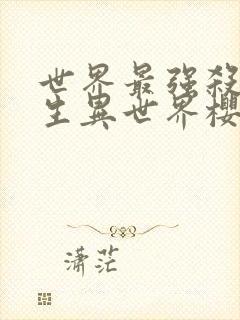 世界最强殺
生異世界櫻
潇茫